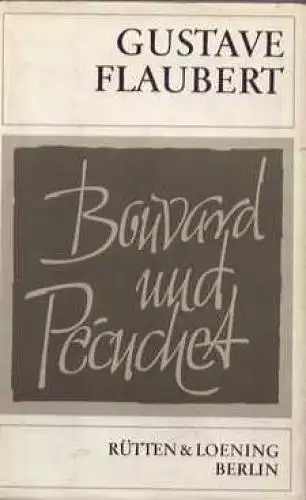 GUSTAVE
FLAUBERT
Bouvard
und
Pécuchet
RÜTTEN & LOENING
BERLIN